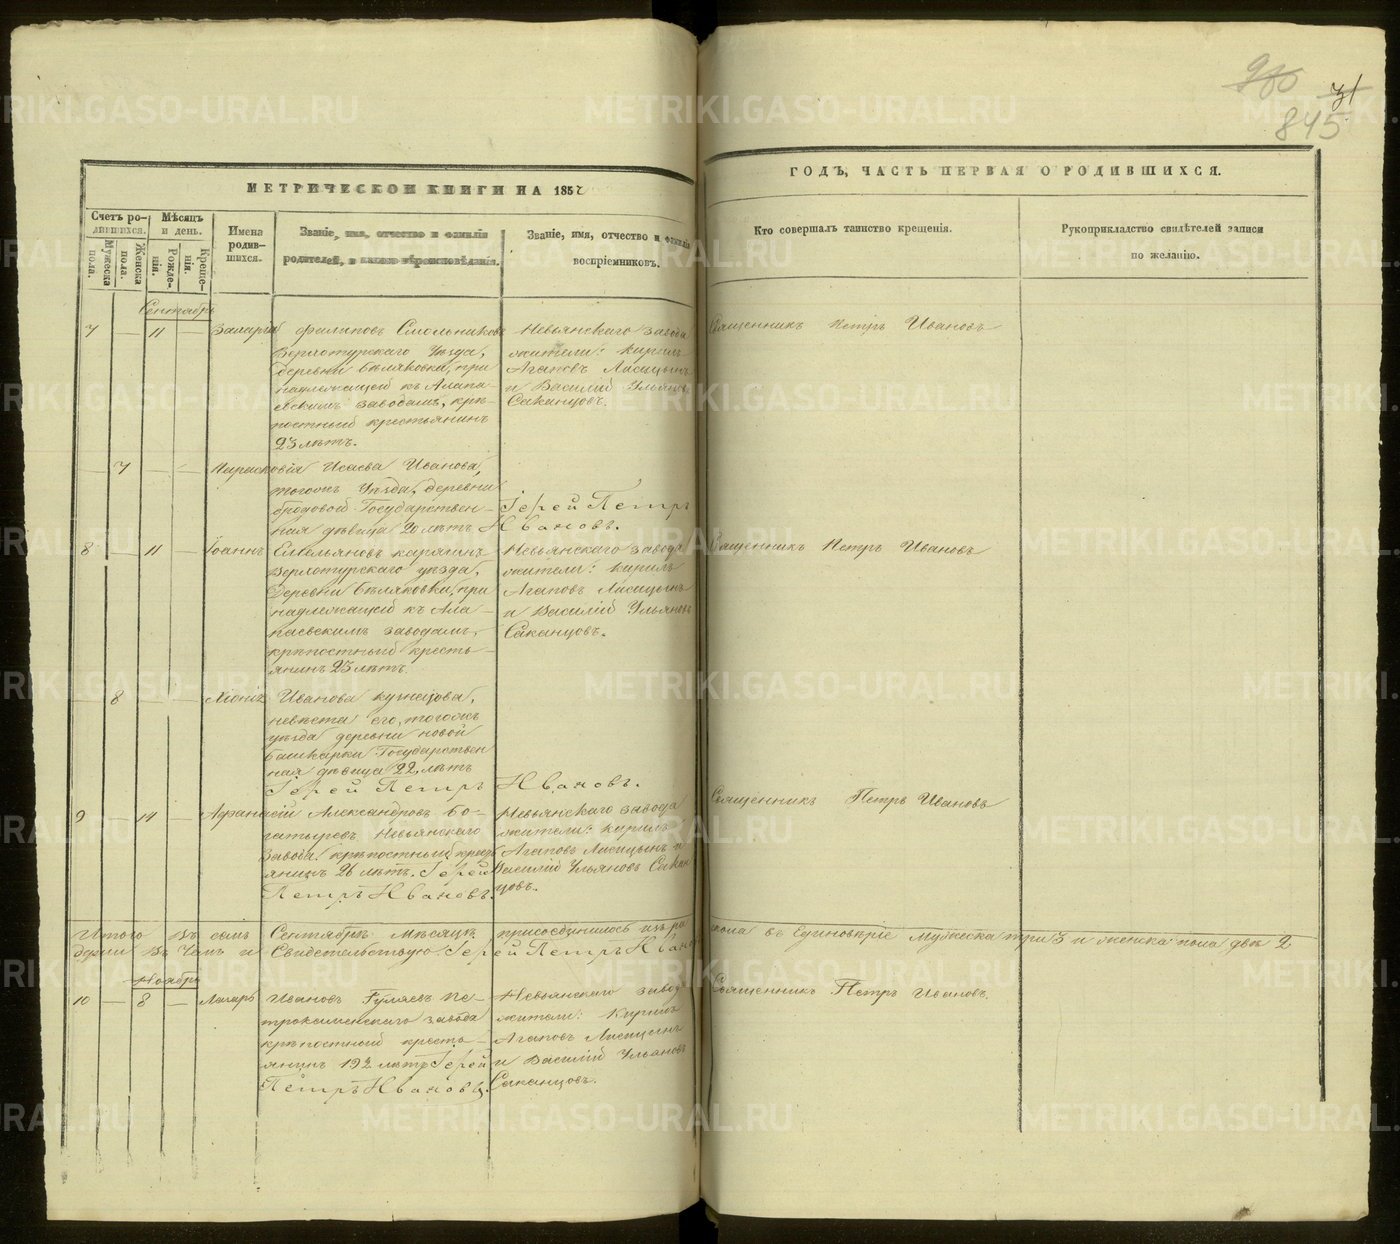 980
31
845
МЕТРИЧЕСКОЙ КНИГИ НА 185
ГОДЪ, ЧАСТЬ ПЕРВАЯ О РОДИВШИХСЯ.
Счетъ родившихся.
Мужеска пола.
Женска пола.
Мѣсяцъ и день.
Рожденія.
Крещенія.
Имена родившихся.
Званіе, имя, отчество и фамилія
родителей, и какого вѣроисповѣданія.
Званіе, имя, отчество и фамилія
воспріемниковъ.
Кто совершалъ таинство крещенія.
Рукоприкладство свидѣтелей записи
по желанію.
Сентябрь
7 — 11 — Захарій Филиповъ Смольниковъ
Верхотурскаго Уѣзда,
деревни Бѣляковки, при
надлежащей къ Алапа-
евскимъ заводамъ, крѣ-
постный крестьянинъ
23 лѣтъ.
Невьянскаго завода
жители: Кирилъ
Агаповъ Лисицынъ
и Василій Ульяновъ
Саканцовъ.
Священникъ Петръ Ивановъ
— 7 — Парасковія Исаева Иванова,
тогожъ Уѣзда, деревни
бродовой Государствен-
ная дѣвица 20 лѣтъ
Іерей Петръ
Ивановъ.
8 — 11 — Іоаннъ Емельяновъ Карягинъ
Верхотурскаго уѣзда,
деревни Бѣляковки, при
надлежащій къ Ала-
паевскимъ заводамъ,
крѣпостный кресть-
янинъ 23 лѣтъ.
Невьянскаго завода
жители: Кирилъ
Агаповъ Лисицынъ
и Василій Ульяновъ
Саканцовъ.
Священникъ Петръ Ивановъ
— 8 — — Хіонія Иванова Кузнецова,
невѣста его, тогожъ
уѣзда деревни новой
башкарки Государствен
ная дѣвица 22, лѣтъ
Іерей Петръ Ивановъ.
9 — 14 — Афанасій Александровъ Бо-
гатыревъ Невьянскаго
завода крѣпостный кресть
янинъ 26 лѣтъ. Іерей
Петръ Ивановъ.
Невьянскаго завода
жители: Кирилъ
Агаповъ Лисицынъ и
Василій Ульяновъ Сакан
цовъ.
Священникъ Петръ Ивановъ
Итого Въ семъ Сентябрѣ Мѣсяцѣ присоединилось изъ ра
скола въ Единовѣріе Мужеска три 3 и женска пола двѣ 2
Въ Чемъ и Свидетельствую. Іерей Петръ Ивановъ
Ноябрь
10 — 8 — Лазарь Ивановъ Гуляевъ Пе-
трокаменскаго завода
крѣпостный кресть-
янинъ 19½ лѣтъ Іерей
Петръ Ивановъ.
Невьянскаго завода
жители: Кирилъ
Агаповъ Лисицынъ
и Василій Ульяновъ
Саканцовъ.
Священникъ Петръ Ивановъ.
METRIKI.GASO-URAL.RU